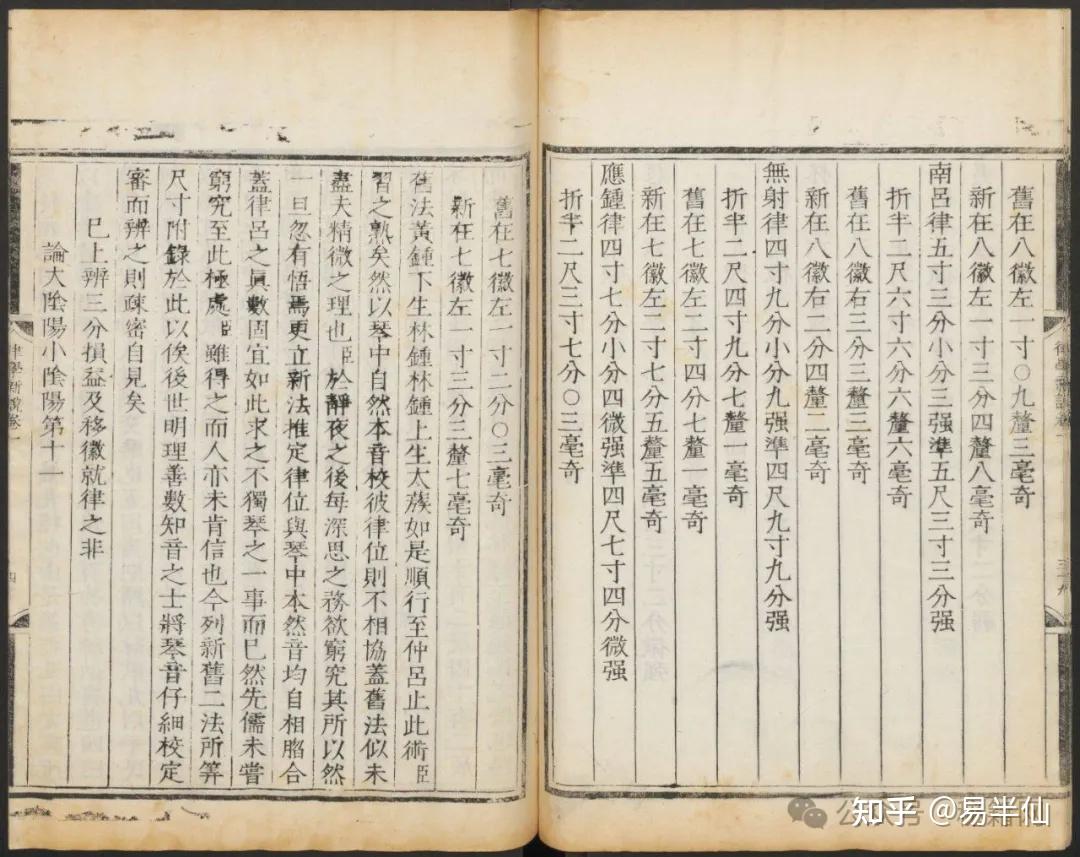 舊在八徽左一寸〇九釐三毫奇
新在八徽左一寸三分四釐八毫奇
南呂律五寸三分小分三强準五尺三寸三分强
折半二尺六寸六分六釐六毫奇
舊在八徽右三分三釐三毫奇
新在八徽右二分四釐二毫奇
無射律四寸九分小分九强準四尺九寸九分强
折半二尺四寸九分七釐一毫奇
舊在七徽左二寸四分七釐一毫奇
新在七徽左二寸七分五釐五毫奇
應鍾律四寸七分小分四微强準四尺七寸四分微强
折半二尺三寸七分〇三毫奇
舊在七徽左一寸二分〇三毫奇
新在七徽左一寸三分三釐七毫奇
舊法黃鍾下生林鍾林鍾上生太蔟如是順行至仲呂止此術臣
習之熟矣然以琴中自然本音校彼律位則不相協蓋舊法似未
盡夫精微之理也臣於靜夜之後每深思之務欲窮究其所以然
一旦忽有悟焉更立新法推定律位與琴中本然音均自相脗合
蓋律呂之眞數固宜如此求之不獨琴之一事而已然先儒未嘗
窮究至此極處臣雖得之而人亦未肯信也今列新舊二法所筭
尺寸附錄於此以俟後世明理善數知音之士將琴音仔細校定
審而辨之則疎密自見矣
巳上辨三分損益及移徽就律之非
論大陰陽小陰陽第十一
律學新說卷一
知乎 @易半仙